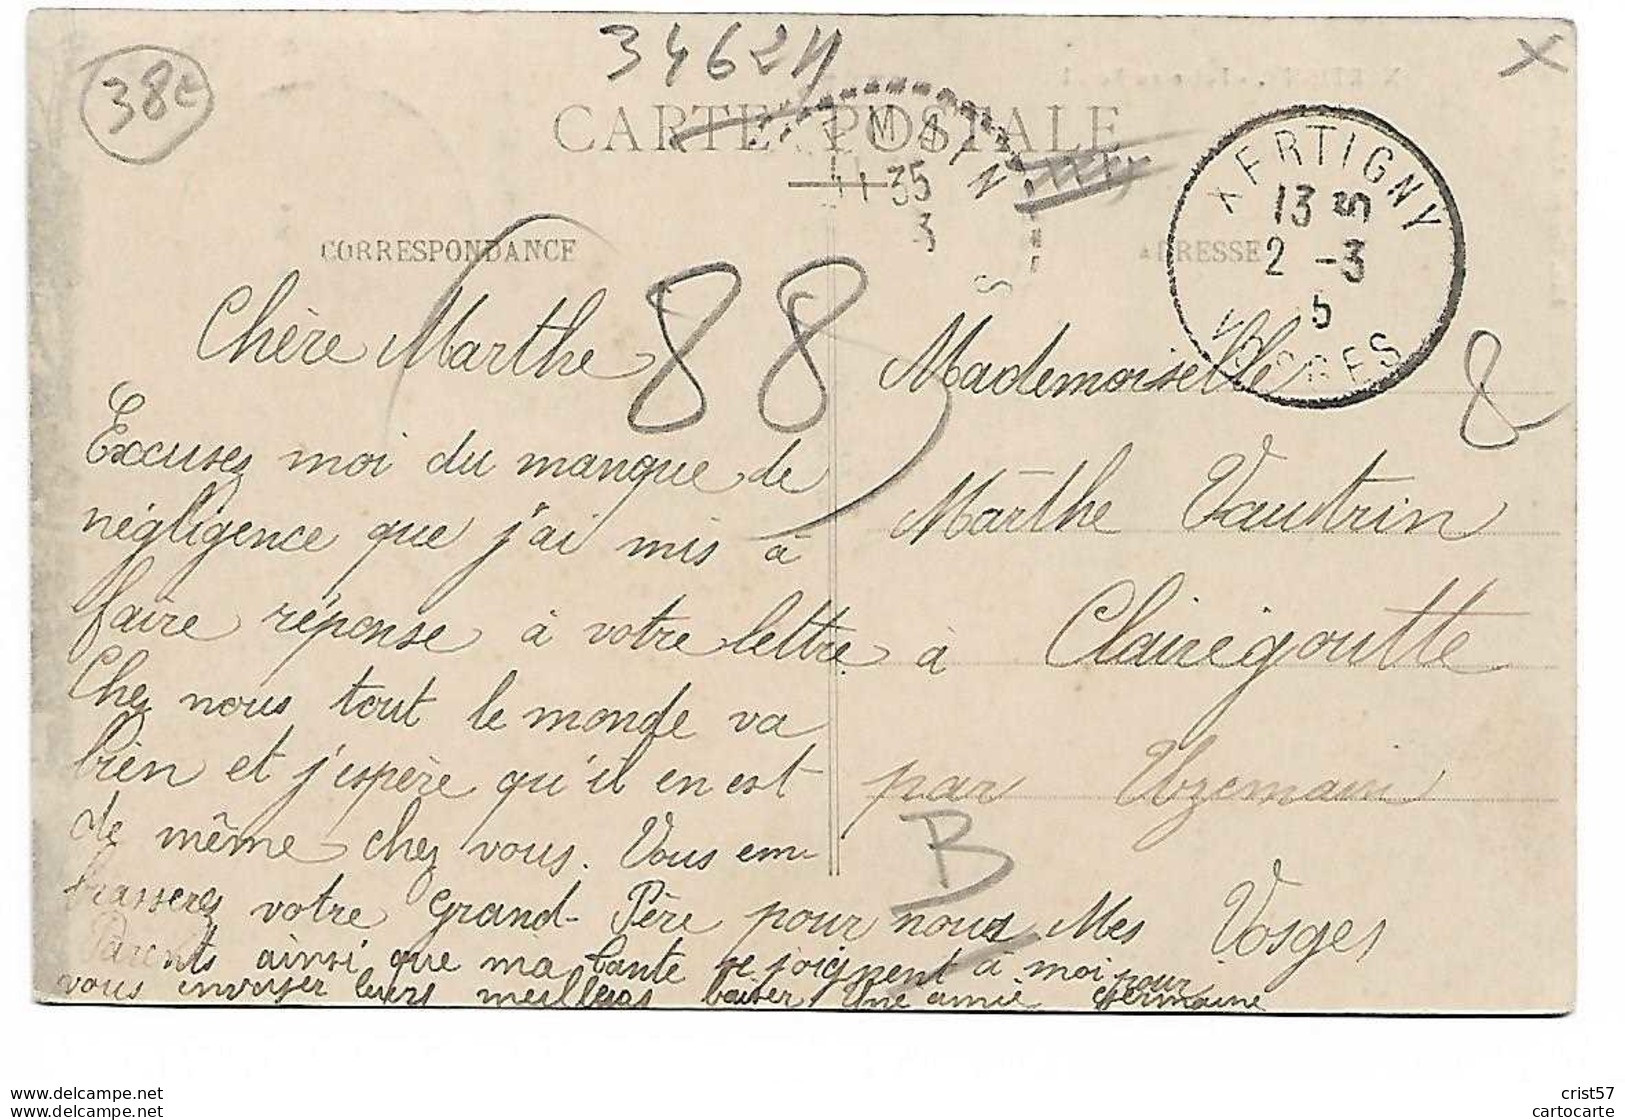 34624
38€
X
CARTE POSTALE
EMAIN
11 35
3
S
XERTIGNY
13 5
2 -3
5
VOSGES
CORRESPONDANCE
ADRESSE
88
8
Chère Marthe
Excusez moi du manque de
négligence que j'ai mis à
faire réponse à votre lettre
Chez nous tout le monde va
bien et j'espère qu'il en est
de même chez vous. Vous em-
brasserez votre Grand-Père pour nous Mes
Parents ainsi que ma tante se joignent à moi pour
vous envoyer leurs meilleurs baiser Une amie Germaine
Mademoiselle
Marthe Vautrin
à Clairegoutte
par Uzemain
B
Vosges
delcampe.net
cartocarte
crist57
cartocarte